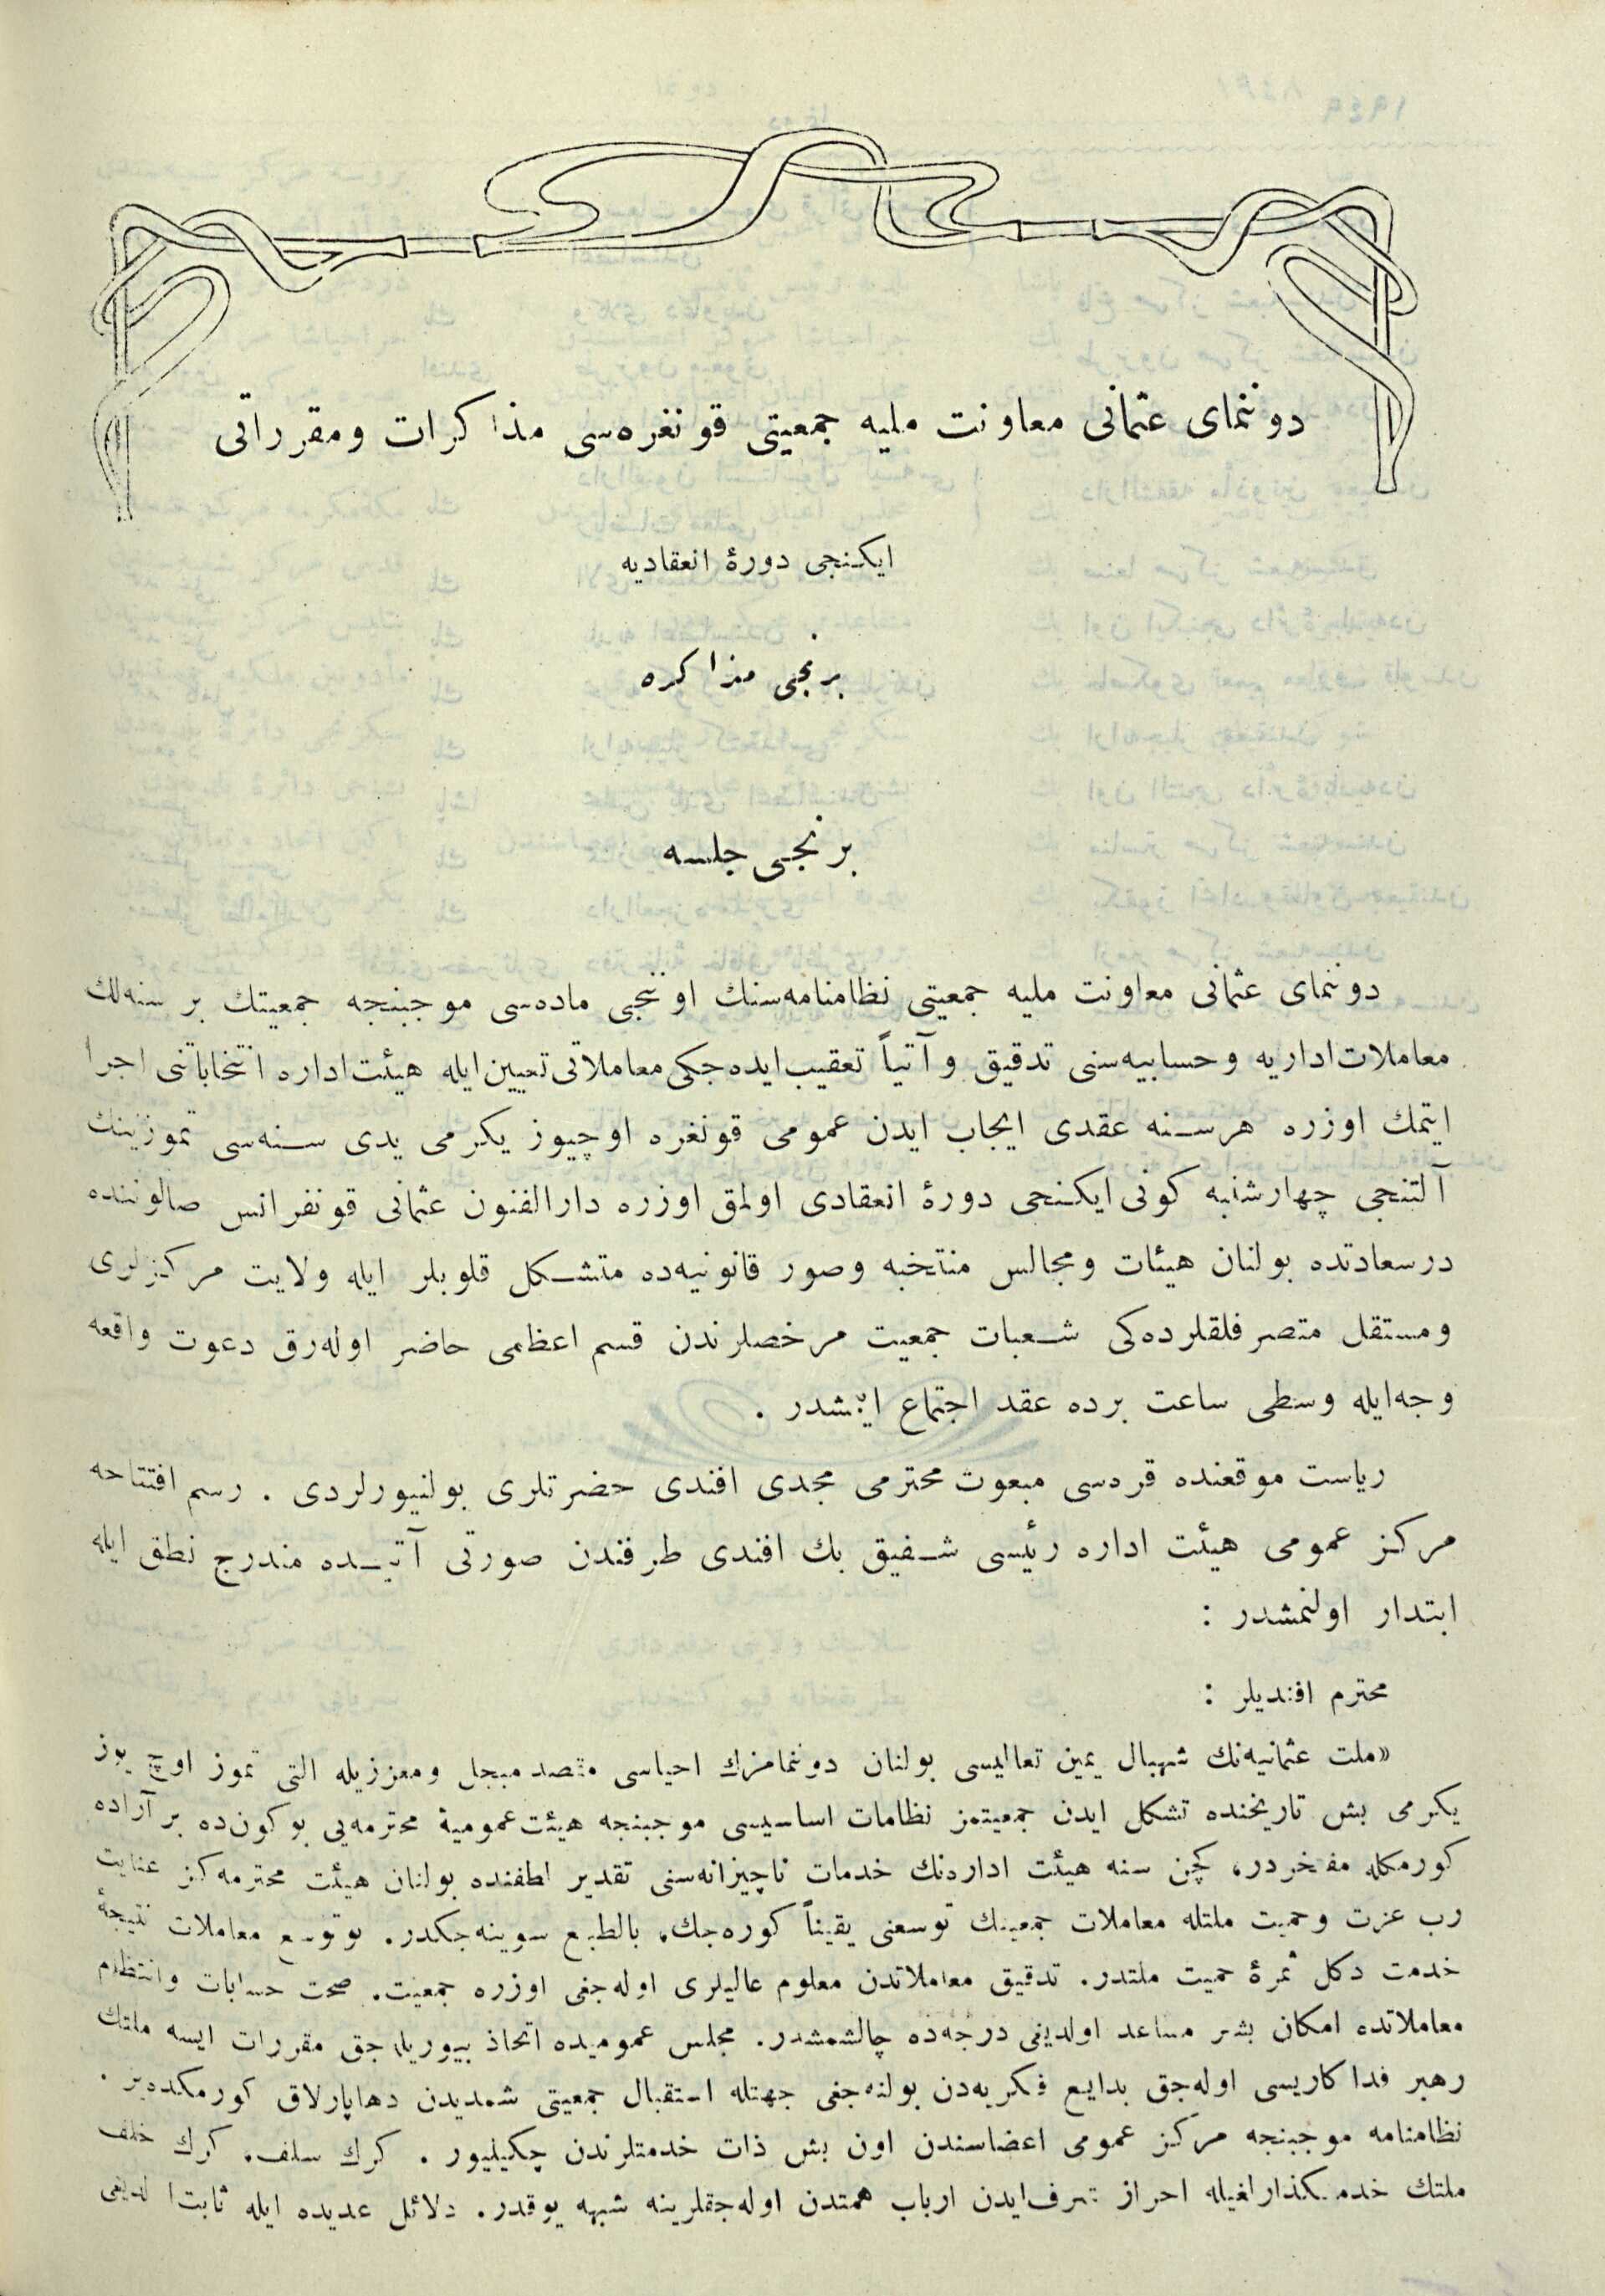 دوننمای عثمانی معاونت ملیه جمعیتی قونغره‌سی مذاکرات ومقرراتی
ایکنجی دورهٔ انعقادیه
برنجی مذاکره
برنجی جلسه
دوننمای عثمانی معاونت ملیه جمعیتی نظامنامه‌سنك اوننجی ماده‌سی موجبنجه جمعیتك بر سنه‌لك
معاملات اداریه وحسابیه‌سنی تدقیق و آتیاً تعقیب ایده‌جکی معاملاتی تعیین ایله هیئت اداره انتخاباتنی اجرا
ایتمك اوزره هرسنه عقدی ایجاب ایدن عمومی قونغره اوچیوز یکرمی یدی سنه‌سی تموزینك
آلتنجی چهارشنبه کونی ایکنجی دورهٔ انعقادی اولمق اوزره دارالفنون عثمانی قونفرانس صالوننده
درسعادتده بولنان هیئات ومجالس منتخبه وصور قانونیه‌ده متشکل قلوبلر ایله ولایت مرکزلری
ومستقل متصرفلقلرده‌کی شعبات جمعیت مرخصلرندن قسم اعظمی حاضر اوله‌رق دعوت واقعه
وجه‌ایله وسطی ساعت برده عقد اجتماع ایتمشدر .
ریاست موقعنده قره‌سی مبعوث محترمی مجدی افندی حضرتلری بولنیورلردی . رسم افتتاحه
مرکز عمومی هیئت اداره رئیسی شفیق بك افندی طرفندن صورتی آتیده مندرج نطق ایله
ابتدار اولنمشدر :
محترم افندیلر :
«ملت عثمانیه‌نك شهبال یمین تعالیسی بولنان دوننمامزك احیاسی مقصد مبجل ومعززیله التی تموز اوچ یوز
یکرمی بش تاریخنده تشکل ایدن جمعیتمز نظامات اساسیسی موجبنجه هیئت عمومیهٔ محترمه‌یی بوکون‌ده بر آراده
کورمکله مفتخردر، کچن سنه هیئت اداره‌نك خدمات ناچیزانه‌سنی تقدیر لطفنده بولنان هیئت محترمه‌کز عنایت
رب عزت وحمیت ملتله معاملات جمعیتك توسعنی یقیناً کوره‌جك، بالطبع سوینه‌جکدر. بو توسع معاملات نتیجهٔ
خدمت دکل ثمرهٔ حمیت ملتدر. تدقیق معاملاتدن معلوم عالیلری اوله‌جغی اوزره جمعیت، صحت حسابات وانتظام
معاملاتده امکان بشر مساعد اولدیغی درجه‌ده چالشمشدر. مجلس عمومیده اتخاذ بیوریله‌جق مقررات ایسه ملتك
رهبر فداکاریسی اوله‌جق بدایع فکریه‌دن بولنه‌جغی جهتله استقبال جمعیتی شمدیدن دها پارلاق کورمکده‌یز .
نظامنامه موجبنجه مرکز عمومی اعضاسندن اون بش ذات خدمتلرندن چکیلیور . کرك سلف، کرك خلف
ملتك خدمتکذارلغیله احراز شرف ایدن ارباب همتدن اوله‌جقلرینه شبهه یوقدر. دلائل عدیده ایله ثابت اولدیغی